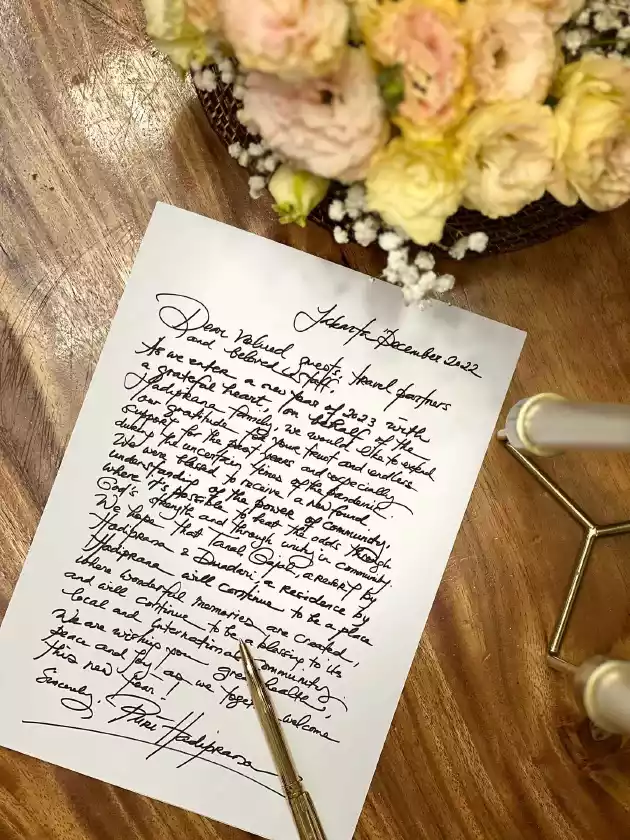 Jakarta, December 2022
Dear Valued guests, travel partners
and beloved staff,
As we enter a new year of 2023 with
a grateful heart, on behalf of the
Hadiprana family, we would like to extend
our gratitude for your trust and endless
support for the past years and especially
during the uncertain times of the pandemic.
We were blessed to receive a new found
understanding of the power of community,
where it's possible to beat the odds through
God's strength and through unity in community.
We hope that Tanah Gajah, a resort by
Hadiprana & Duadari, a residence by
Hadiprana will continue to be a place
where wonderful memories are created,
and will continue to be a blessing to its
local and international community.
We are wishing you great health,
peace and joy as we together welcome
this new year!
Sincerely,
Puri Hadiprana